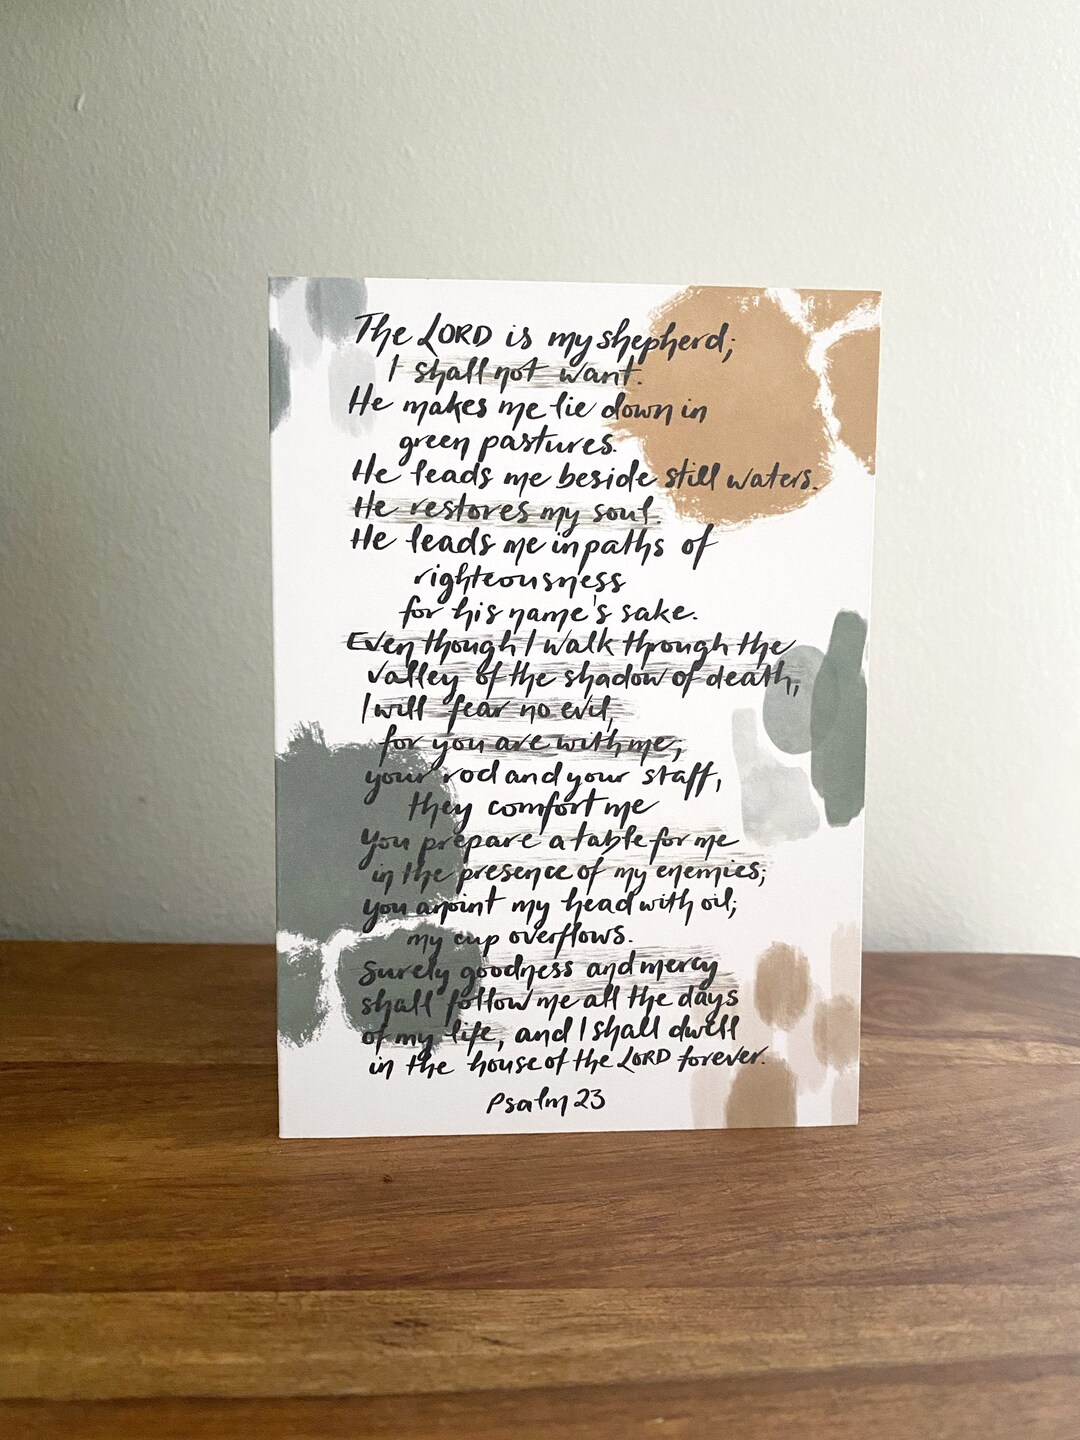 The LORD is my shepherd;
I shall not want.
He makes me lie down in
green pastures.
He leads me beside still waters.
He restores my soul.
He leads me in paths of
righteousness
for his name's sake.
Even though I walk through the
valley of the shadow of death,
I will fear no evil,
for you are with me;
your rod and your staff,
they comfort me
You prepare a table for me
in the presence of my enemies;
you anoint my head with oil;
my cup overflows.
Surely goodness and mercy
shall follow me all the days
of my life, and I shall dwell
in the house of the LORD forever.
Psalm 23